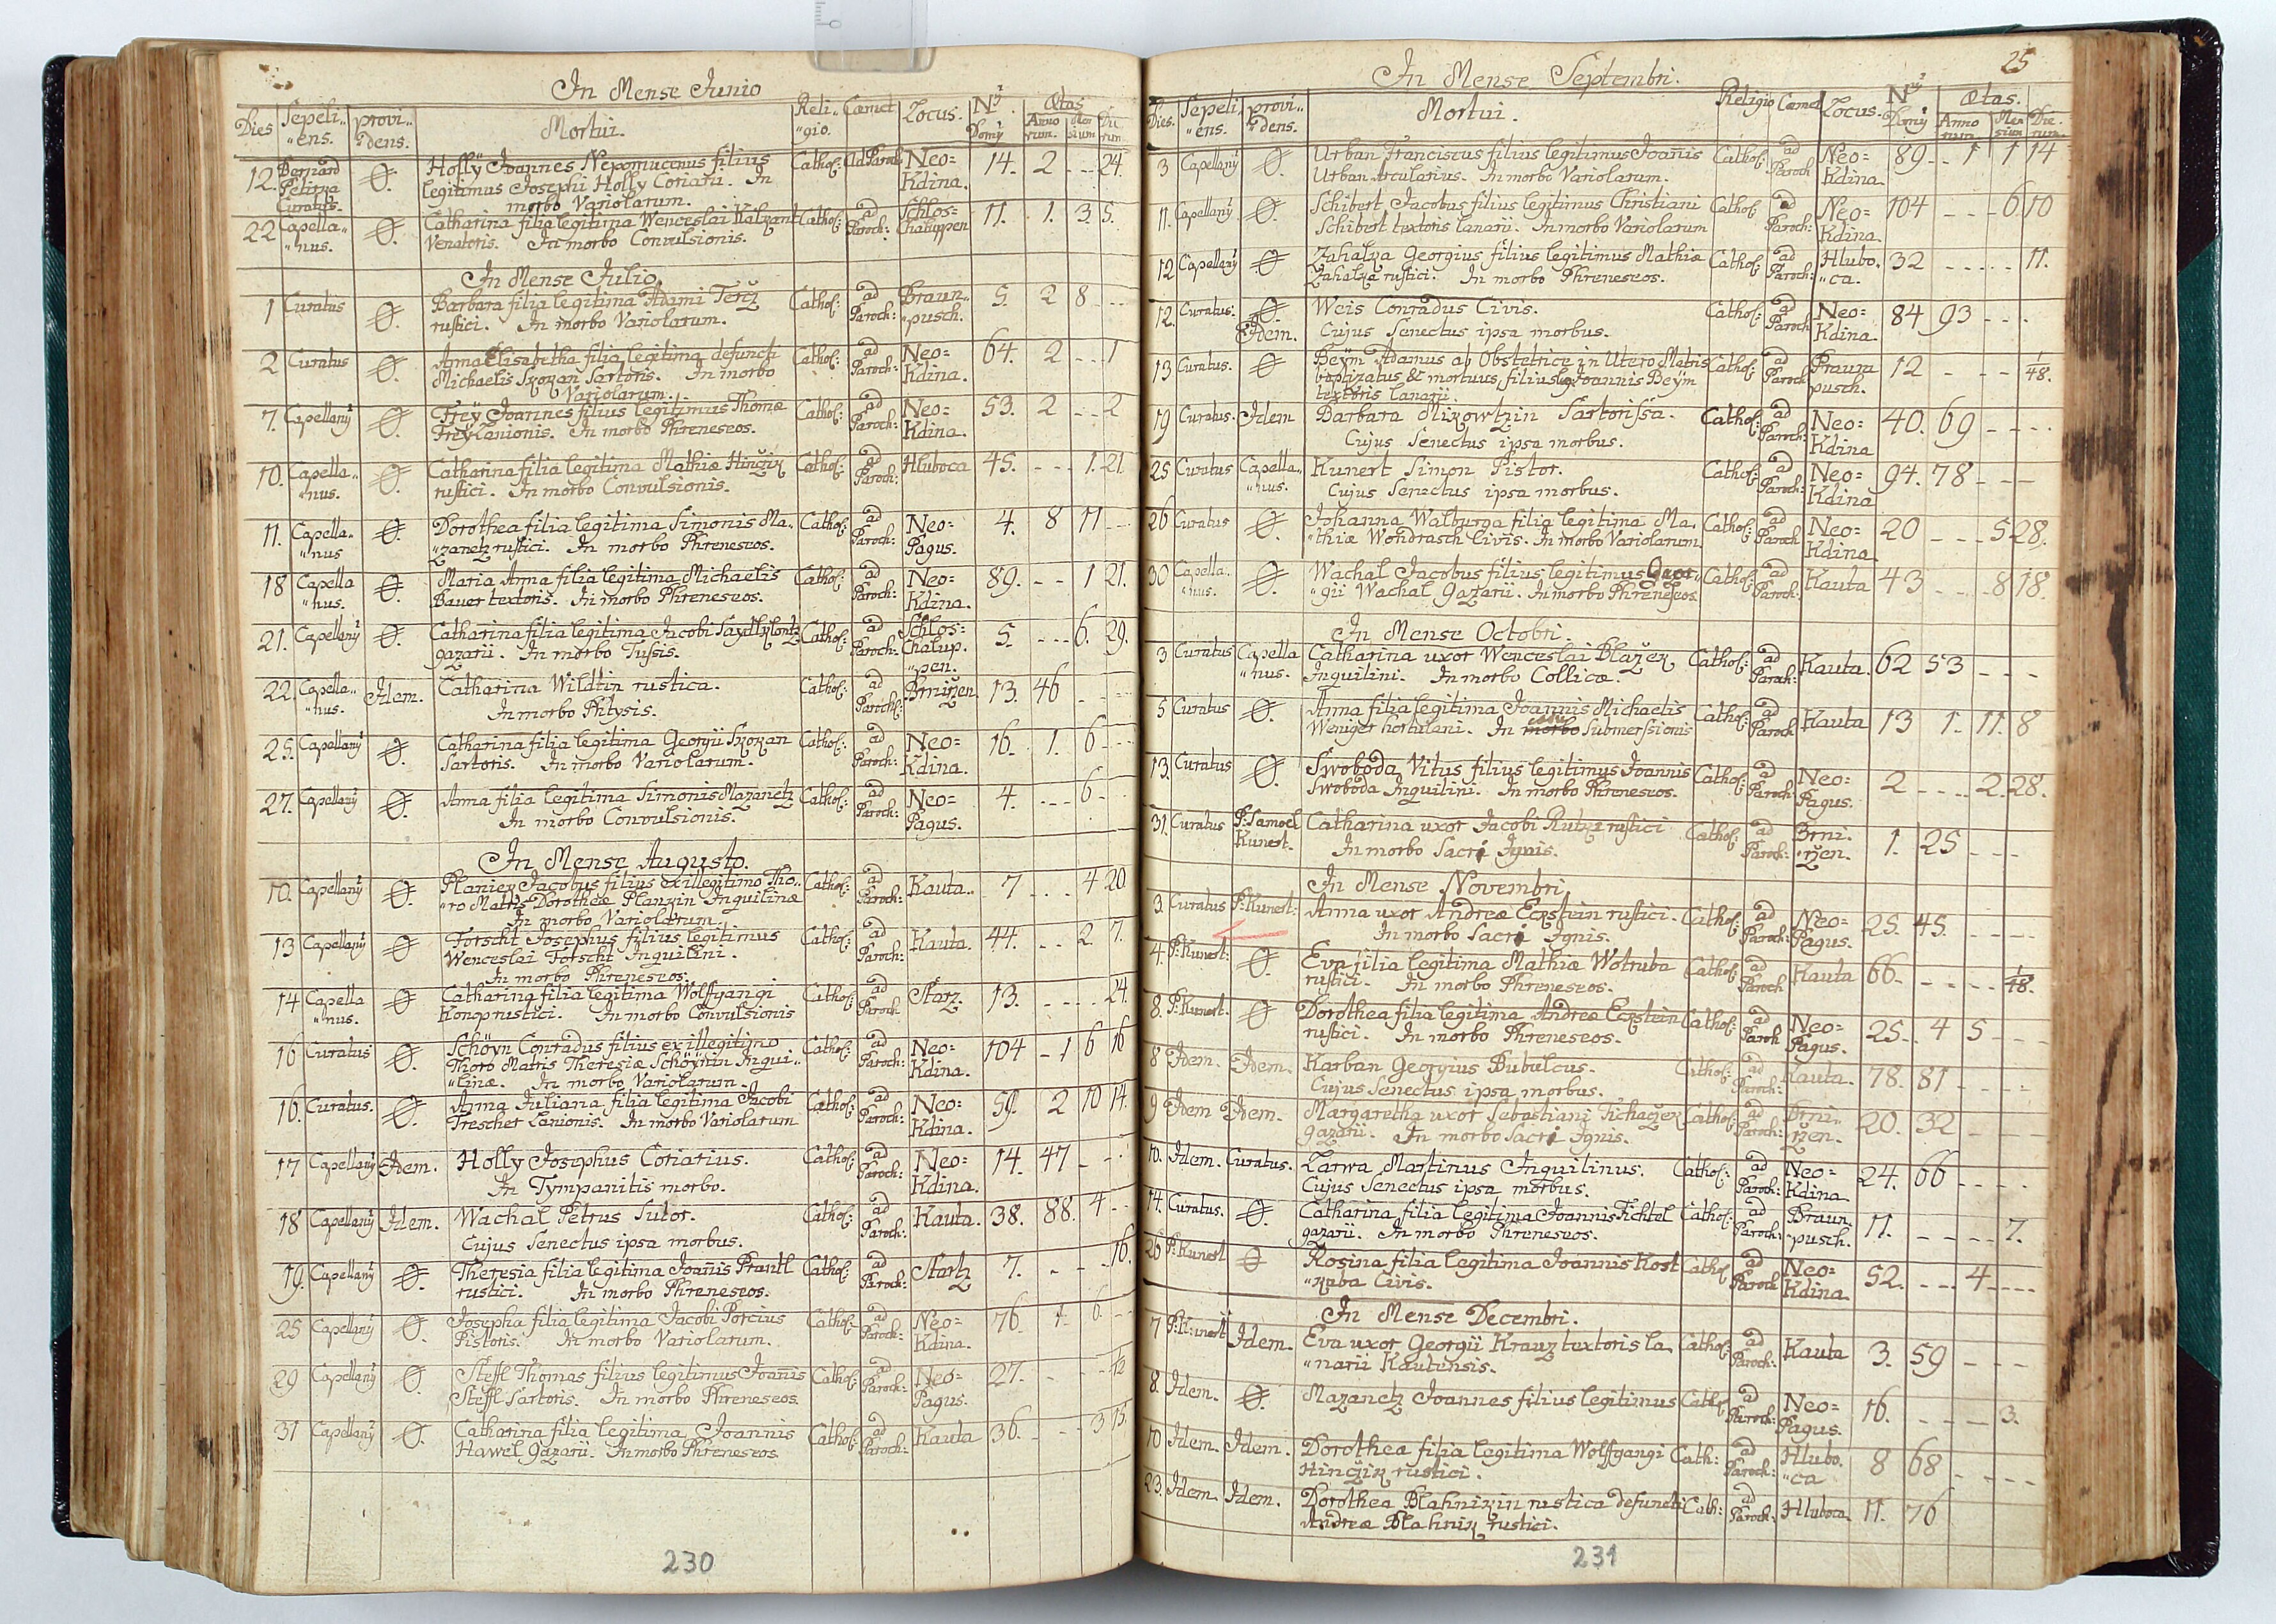 In Mense Junio
Dies Sepeli„ „ens. provi„ „dens. Mortui. Reli„ „gio. Cœmet Locus. Nrus Domus Ætas Anno rum. Men sium Die rum.
12. Bernard Petirka Curatus. Ø. Hollÿ Joannes Nepomucenus filius Cathol: ad Paroch: Neo= Kdina. 14. 2 - - 24.
legitimus Josephi Holly Coriarii. In
morbo Variolarum.
22 Capella„ „nus. Ø. Catharina filia legitima Wenceslai Cathol: ad Paroch: Schlos= Chaluppen 11. 1. 3. 5.
Venatoris. In morbo Convulsionis.
In Mense Julio
1 Curatus Ø. Barbara filia legitima Adami Terčz Cathol: ad Paroch: Braun„ „pusch. 5. 2 8 - -
rustici. In morbo Variolarum.
2 Curatus Ø. Anna Elisabetha filia legitima defuncti Cathol: ad Paroch: Neo= Kdina. 64. 2 - - 1
Michaelis Skokan Sartoris. In morbo
Variolarum.
7. Capellanus Ø. Freÿ Joannes filius legitimus Thomæ Cathol: ad Paroch: Neo= Kdina. 53. 2 - - 2
Freÿ Lanionis. In morbo Phreneseos.
10. Capella„ „nus. Ø. Catharina filia legitima Mathiæ Hinčzik Cathol: ad Paroch: Hluboca 45. - - - 1. 21
rustici. In morbo Convulsionis.
11. Capella„ „nus Ø. Dorothea filia legitima Simonis Ma„ Cathol: ad Paroch: Neo= Pagus. 4. 8 11 - -
„zanetz rustici. In morbo Phreneseos.
18 Capella „nus. Ø. Maria Anna filia legitima Michaelis Cathol: ad Paroch: Neo= Kdina. 89. - - 1 21.
Bauer textoris. In morbo Phreneseos.
21. Capellanus Ø. Catharina filia legitima Jacobi Cathol: ad Paroch: Schlos= Chalup. „pen. 5. - - - 6. 29.
gazarii. In morbo Tussis.
22. Capella„ „nus. Idem. Catharina Wildtin rustica. Cathol: ad Paroch: 13. 46 - - -
In morbo Phtysis.
25. Capellanus Ø. Catharina filia legitima Georgii Skokan Cathol: ad Paroch: Neo= Kdina. 16. 1. 6 - - -
Sartoris. In morbo Variolarum.
27. Capellanus Ø. Anna filia legitima Simonis Mazanetz Cathol: ad Paroch: Neo= Pagus. 4. - - - 6 -
In morbo Convulsionis.
In Mense Augusto.
10. Capellanus Ø. Jacobus filius ex illegitimo Tho„ Cathol: ad Paroch: Kauta.. 7 - - - 4 20
„ro Matris Dorotheæ Inquilinæ
In morbo Variolarum.
13 Capellanus Ø. Forscht Josephus filius legitimus Cathol: ad Paroch: Kauta. 44. - - 2. 7.
Wenceslai Forscht Inquilini.
In morbo Phreneseos.
14 Capella „nus. Ø. Catharina filia legitima Wolffgangi Cathol: ad Paroch Starz. 13. - - - - 24
Konop rustici. In morbo Convulsionis
16 Curatus Ø. Schöyn Conradus filius ex illegitimo Cathol: ad Paroch: Neo= Kdina. 104 - 1 6 16
Thoro Matris Theresiæ Schöynin Inqui„
„linæ. In morbo Variolarum.
16. Curatus. Ø. Anna Juliana filia legitima Jacobi Cathol: ad Paroch: Neo= Kdina. 59. 2 10 14
Trescher Lanionis. In morbo Variolarum
17 Capellanus Idem. Holly Josephus Coriarius. Cathol: ad Paroch: Neo= Kdina. 14. 47 - - -
In Tympanitis morbo.
18 Capellanus Idem. Wachal Petrus Sutor. Cathol: ad Paroch: Kauta. 38. 88. 4 - -
Cujus Senectus ipsa morbus.
19. Capellanus Ø. Theresia filia legitima Joannis Prantl Cathol: ad Paroch: Startz 7. - - - 16.
rustici. In morbo Phreneseos.
25 Capellanus Ø. Josepha filia legitima Jacobi Porcius Cathol: ad Paroch: Neo= Kdina. 76 1 6 - -
Pistoris. In morbo Variolarum.
29 Capellanus Ø. Steffl Thomas filius legitimus Joannis Cathol: ad Paroch: Neo= Pagus. 27. - - - 12
Steffl Sartoris. In morbo Phreneseos.
31 Capellanus Ø. Catharina filia legitima Joannis Cathol: ad Paroch: Kauta 36. - - - 3 15.
Hawel gazarii. In morbo Phreneseos
230
25
In Mense Septembri.
Dies. Sepeli „ens. provi„ „dens. Mortui. Religio Cœmet Locus. Nrus Domus Ætas. Anno rum. Men sium Die rum.
3 Capellanus Ø. Urban Franciscus filius legitimus Joannis Cathol: ad Paroch Neo= Kdina. 89 - - 1 1 14
Urban Arcularius. In morbo Variolarum.
11. Capellanus Ø. Schibert Jacobus filius legitimus Christiani Cathol: ad Paroch: Neo= Kdina. 104 - - - 6 10
Schibert textoris lanarii. In morbo Variolarum
12 Capellanus Ø. Zahalka Georgius filius legitimus Mathiæ Cathol: ad Paroch: Hlubo. „ca. 32 - - - - - 11.
Zahalka rustici. In morbo Phreneseos.
12. Curatus. Ø. Idem. Weis Conradus Civis. Cathol: ad Paroch Neo= Kdina. 84 93 - - -
Cujus Senectus ipsa morbus.
13 Curatus. Ø Beÿm Adamus ab Obstetrice in Utero Matris Cathol: ad Paroch Praun pusch. 12 - - - 1/48.
baptizatus & mortuus filius leg: Joannis Beÿm
textoris lanarii.
19 Curatus. Idem Barbara Mikowtzin Sartorissa. Cathol: ad Paroch: Neo= Kdina 40. 69 - - - -
Cujus Senectus ipsa morbus.
25 Curatus Capella„ „nus. Kunert Simon Pistor. Cathol: ad Paroch: Neo= Kdina 94. 78 - - -
Cujus Senectus ipsa morbus.
26 Curatus Ø. Johanna Walburga filia legitima Ma„ Cathol: ad Paroch Neo= Kdina 20 - - - 5 28.
„thiæ Wondrasch Civis. In morbo Variolarum
30 Capella. „nus. Ø. Wachal Jacobus filius legitimus Geor„ Cathol: ad Paroch: Kauta 43 - - - 8 18.
„gii Wachal gazarii. In morbo Phreneseos
In Mense Octobri.
3 Curatus Capella „nus. Catharina uxor Wenceslai Blažek Cathol: ad Paroch: Kauta. 62 53 - - -
Inquilini. In morbo Collicæ.
5 Curatus Ø. Anna filia legitima Joannis Michaelis Cathol: ad Paroch Kauta 13 1. 11. 8
Weniger hortulani. In morbo Submersionis
13. Curatus Ø. Swoboda Vitus filius legitimus Joannis Cathol: ad Paroch: Neo= Pagus. 2 - - - - 2. 28.
Swoboda Inquilini. In morbo Phreneseos.
31. Curatus P: Samoel Kunert. Catharina uxor Jacobi rustici Cathol: ad Paroch: Brni. „žen. 1. 25 - - -
In morbo Sacri Ignis.
In Mense Novembri
3. Curatus P: Kunert: Anna uxor Andreæ Eckstein rustici. Cathol: ad Paroch: Neo= Pagus. 25. 45. - - - -
In morbo Sacri Ignis.
4. P: Kunert: Ø. Eva filia legitima Mathiæ Wotruba Cathol: ad Paroch Kauta 66. - - - - 1/48.
rustici. In morbo Phreneseos.
8. P: Kunert. Ø Dorothea filia legitima Andreæ Eckstein Cathol: ad Paroch Neo= Pagus. 25. 4 5 - - -
rustici. In morbo Phreneseos.
8 Idem. Idem. Karban Georgius Bubulcus. Cathol: ad Paroch: Kauta. 78. 81 - - - -
Cujus Senectus ipsa morbus.
9 Idem Idem. Margaretha uxor Sebastiani Tichačzek Cathol: ad Paroch: Brni„ „žen. 20. 32 - -
gazarii. In morbo Sacri Ignis.
10. Idem. Curatus. Larwa Martinus Inquilinus. Cathol: ad Paroch: Neo= Kdina. 24. 66 - - - -
Cujus Senectus ipsa morbus.
14. Curatus. Ø. Catharina filia legitima Joannis Fichtel Cathol: ad Paroch: Braun. „pusch. 11. - - - - 7.
gazarii. In morbo Phreneseos.
26 P: Kunert Ø Rosina filia legitima Joannis Kost Cathol ad Paroch Neo= Kdina. 52. - - - 4 - - - -
„kuba Civis.
In Mense Decembri.
7 P: Kunert Idem. Eva uxor Georgii Krauz textoris la„ Cathol: ad Paroch: Kauta 3. 59 - - -
„narii Kautensis.
8. Idem. Ø. Mazanetz Joannes filius legitimus Cathol ad Paroch: Neo= Pagus. 16. - - - - 3.
10 Idem. Idem. Dorothea filia legitima Wolffgangi Cath: ad Paroch: Hlubo. „ca 8 68 - - - -
Hinčzik rustici.
23. Idem. Idem. Dorothea Blahnikin rustica defuncti Cath: ad Paroch: Hluboca 11. 76
Andreæ Blahnik rustici.
231